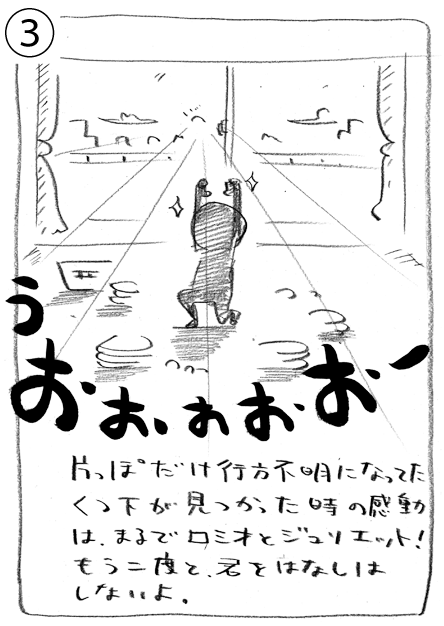 3
うおぉ、ぉおおー
片っぽだけ行方不明になってた
くつ下が見つかった時の感動
は、まるでロミオとジュリエット!
もう二度と、君をはなしは
しないよ。